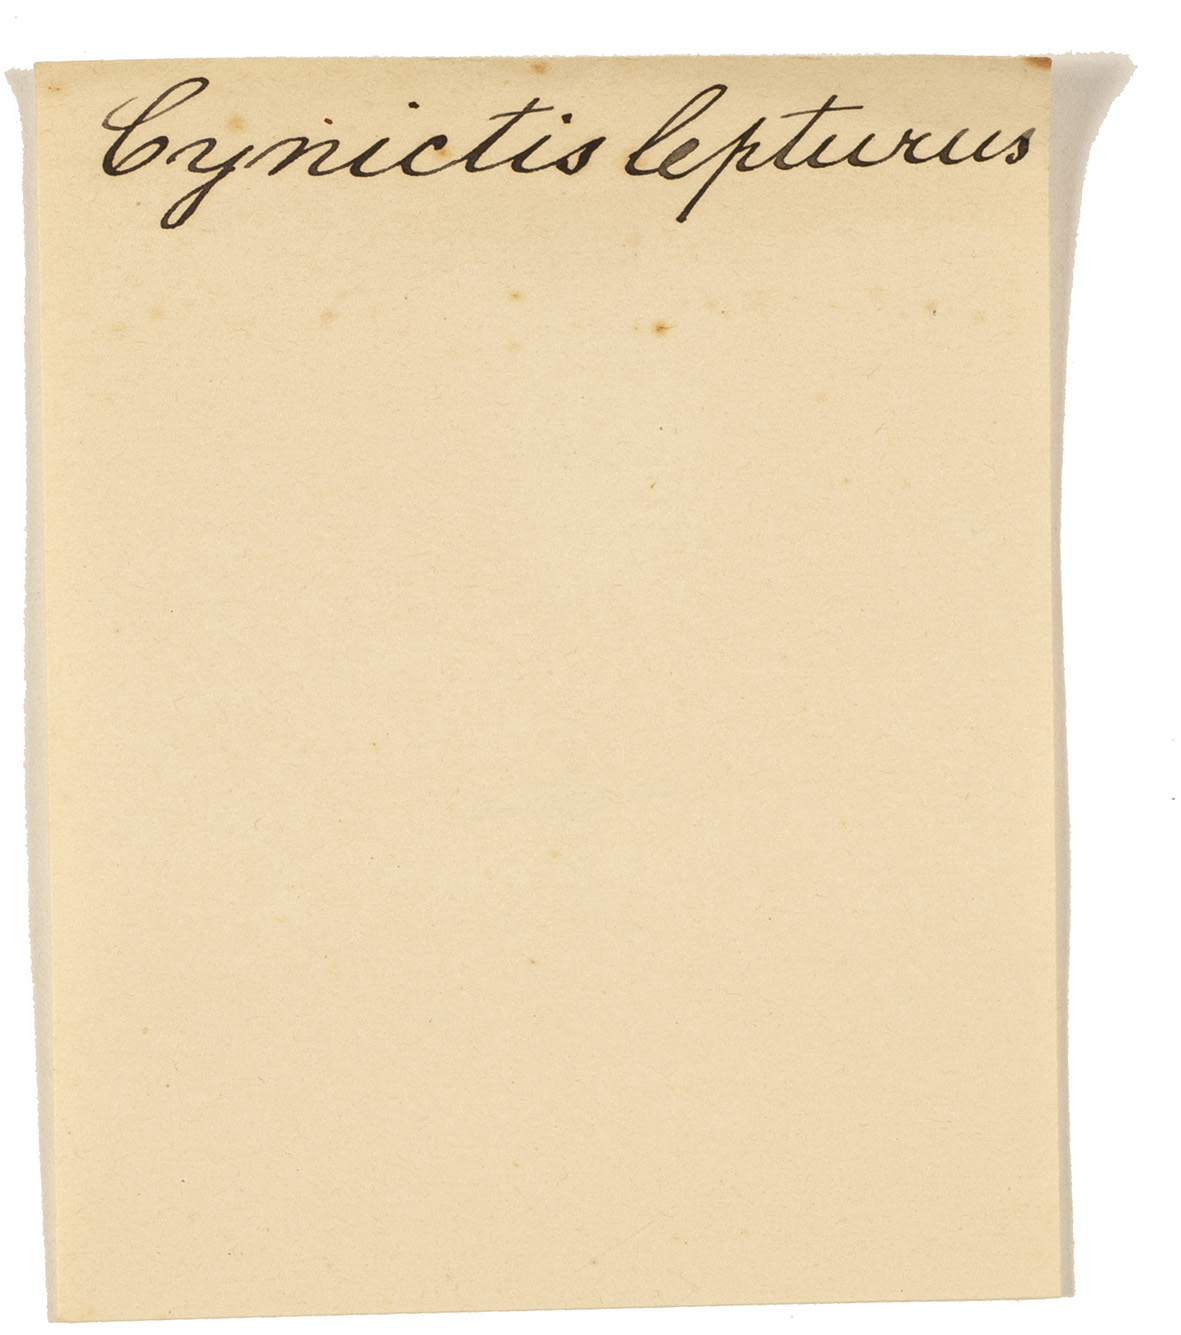 Cynictis lepturus